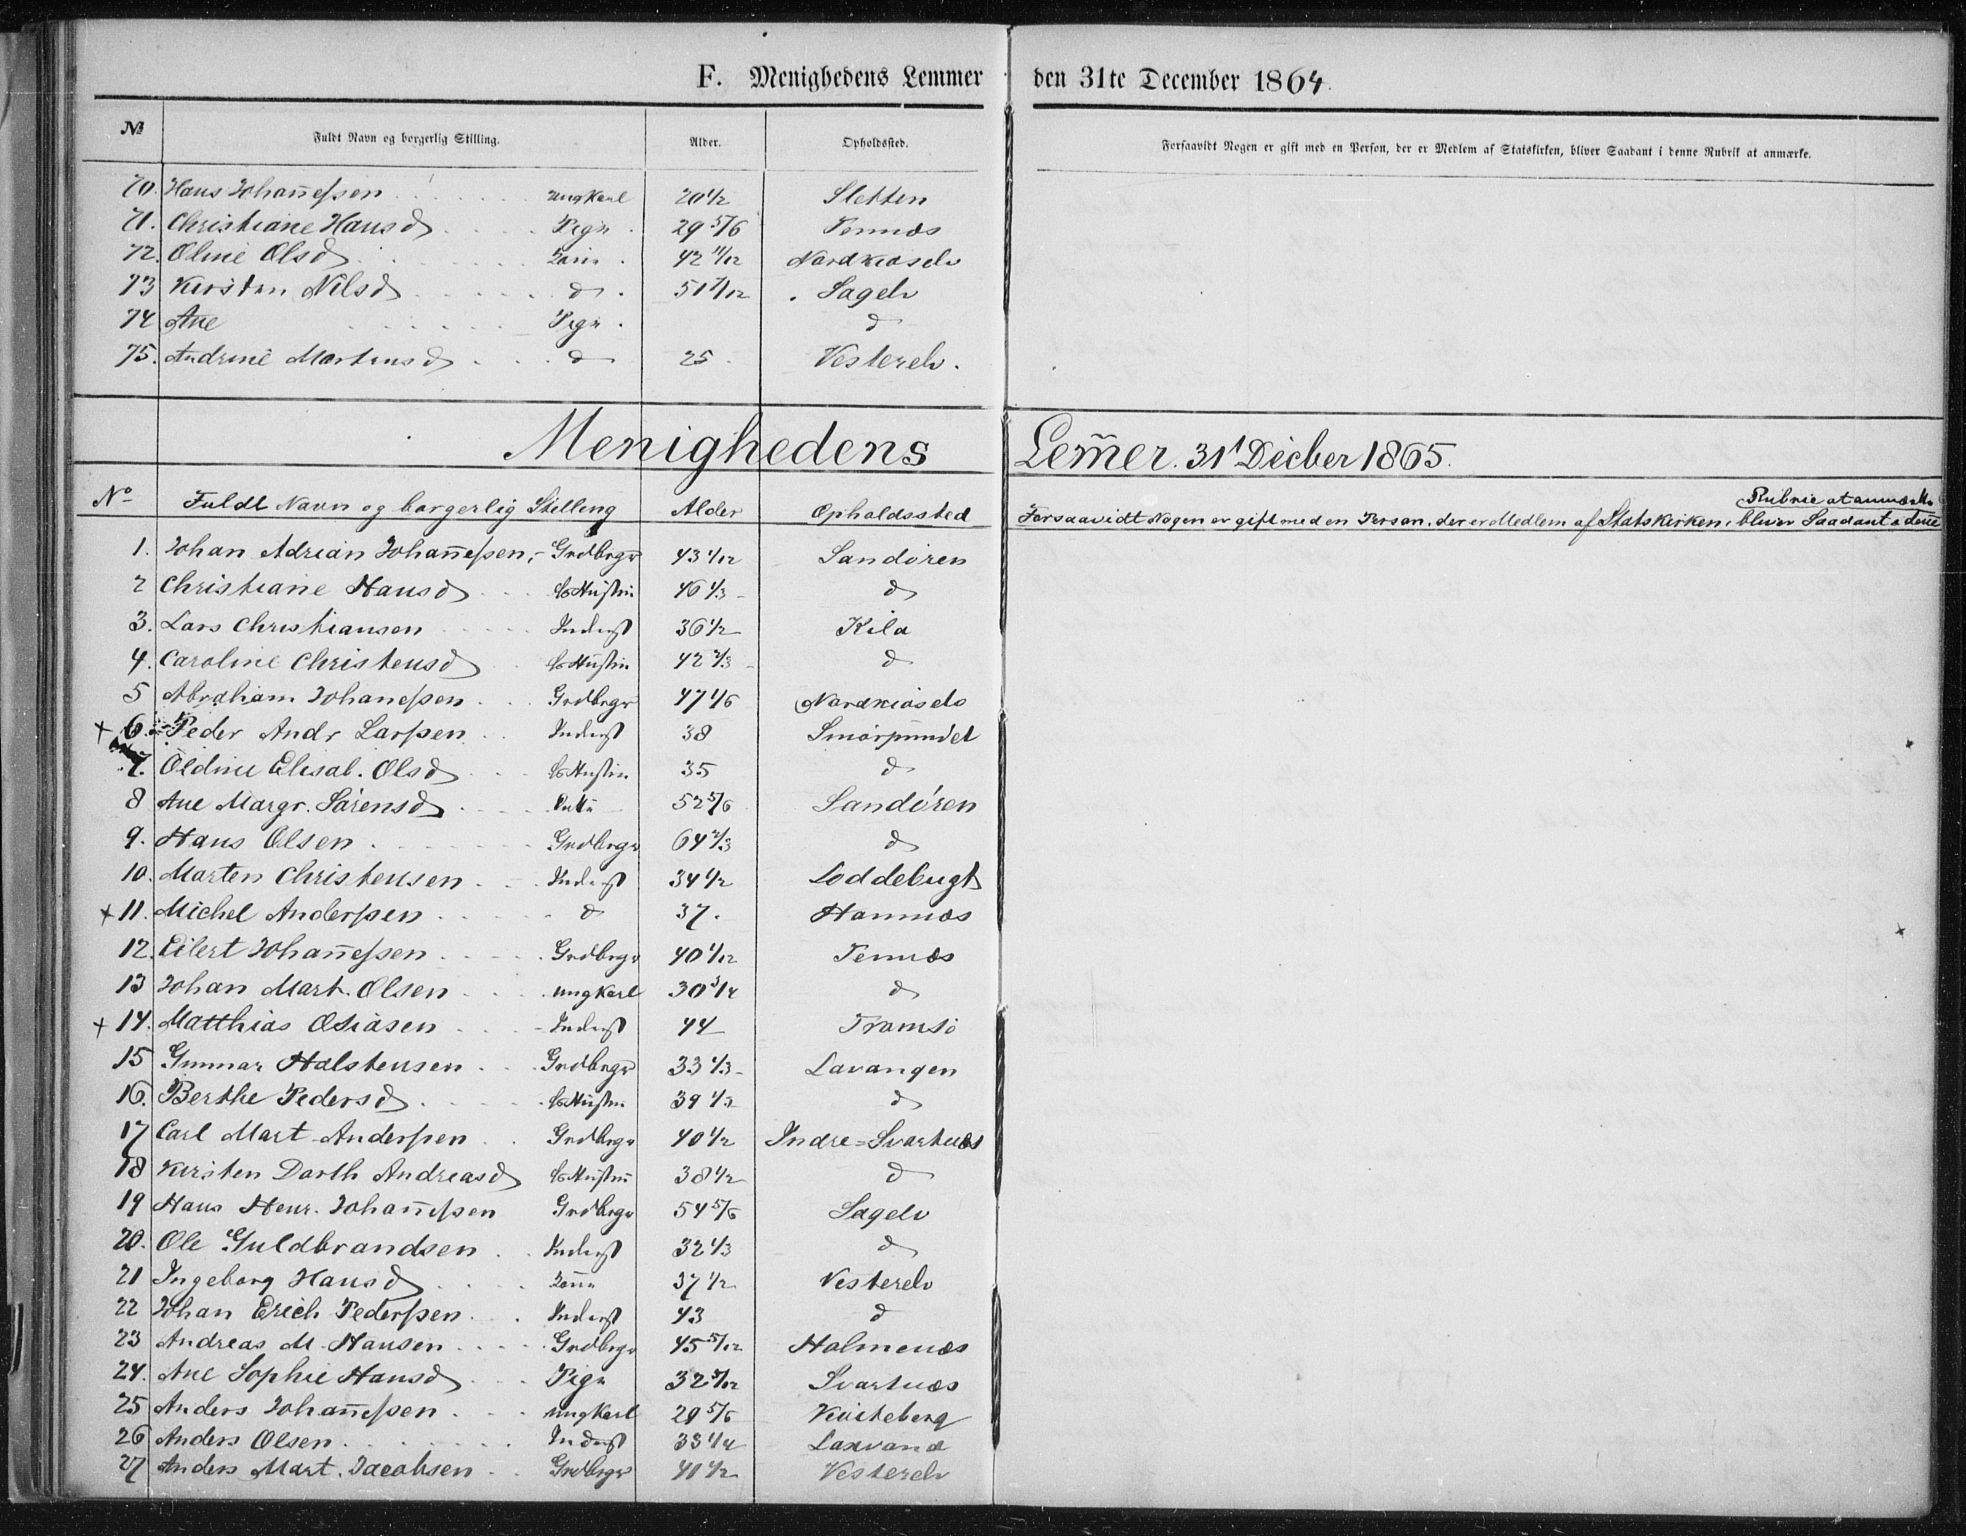 F. Menighedens Lemmer den 31te December 1864.
№ Fuldt Navn og borgerlig Stilling. Alder. Opholdssted. Forsaavidt Nogen er gift med en Person, der er Medlem af Statskirken, bliver Saadant i denne Rubrik at anmærke.
70. Hans Johan̄essen ungkarl 20 1/2 Sletten
71. Christiane Hansd Pige 29 5/6 Tennæs
72. Oline Olsd 42 11/12 Nordkioselv
73 Kirsten Nilsd d 51 Sagelv
74 Ane Pige d
75. Andrine Martinsd d 25 Vesterelv.
Menighedens Lem̄er. 31t Decber 1865.
No Fuldt Navn og borgerlig Stilling Alder Opholdssted Forsaavidt Nogen er gift med en Person, der er Medlem af Statskirken, bliver Saadant i den̄e Rubric at anmærke
1. Johan Adrian Johan̄essen, Grdbrgr 43 1/12 Sandøren
2 Christiane Hansd Hustru 46 1/3 d
3. Lars Christiansen Inderst 36 1/2 Kila
4. Caroline Christensd Hustru 42 2/3 d
5 Abraham Johanessen Grdbrgr 47 1/6 Nordkioselv
+ 6. Peder Andr Larssen Inderst 38 Smørpundet
7. Oldine Elisab. Olsd Hustru 35 d
8 Ane Margr. Sørensd Enke 52 5/6 Sandøren
9. Hans Olsen Grdbrgr 64 2/3 d
10. Morten Christensen Inderst 34 1/2 Loddebugt
+ 11. Michel Anderssen d 37. Hamnæs
12. Eilert Johan̄essen Grdbrgr 40 1/12 Tennæs
13 Johan Mart. Olsen ungkarl 30 3/4 d
+ 14. Matthias Osiasen Inderst 44 Tromsø
15 Gunnar Halstensen Grdbrgr 33 1/3 Lavangen
16. Berthe Pedersd Hustru 39 1/3 d
17 Carl Mart. Anderssen Grdbrgr 40 1/2 Indre=Svartnæs
18 Kirsten Dorth Andreasd Hustru 38 1/2 d
19 Hans Henr. Johan̄essen Grdbrgr 54 5/6 Sagelv
20. Ole Guldbrandsen Inderst 32 1/3 d
21 Ingeborg Hansd 37 1/2 Vesterelv
22 Johan Erich Pederssen Inderst 43 d
23 Andreas M. Hansen Grdbrgr 45 5/12 Holmenæs
24. Ane Sophie Hansd Pige 32 Svartnæs
25 Anders Johan̄essen ungkarl 29 5/6 Kviteberg
26 Anders Olsen Inderst 33 1/4 Laxvand
27 Anders Mart. Jacobsen Grdbrgr 41 1/2 Vesterelv